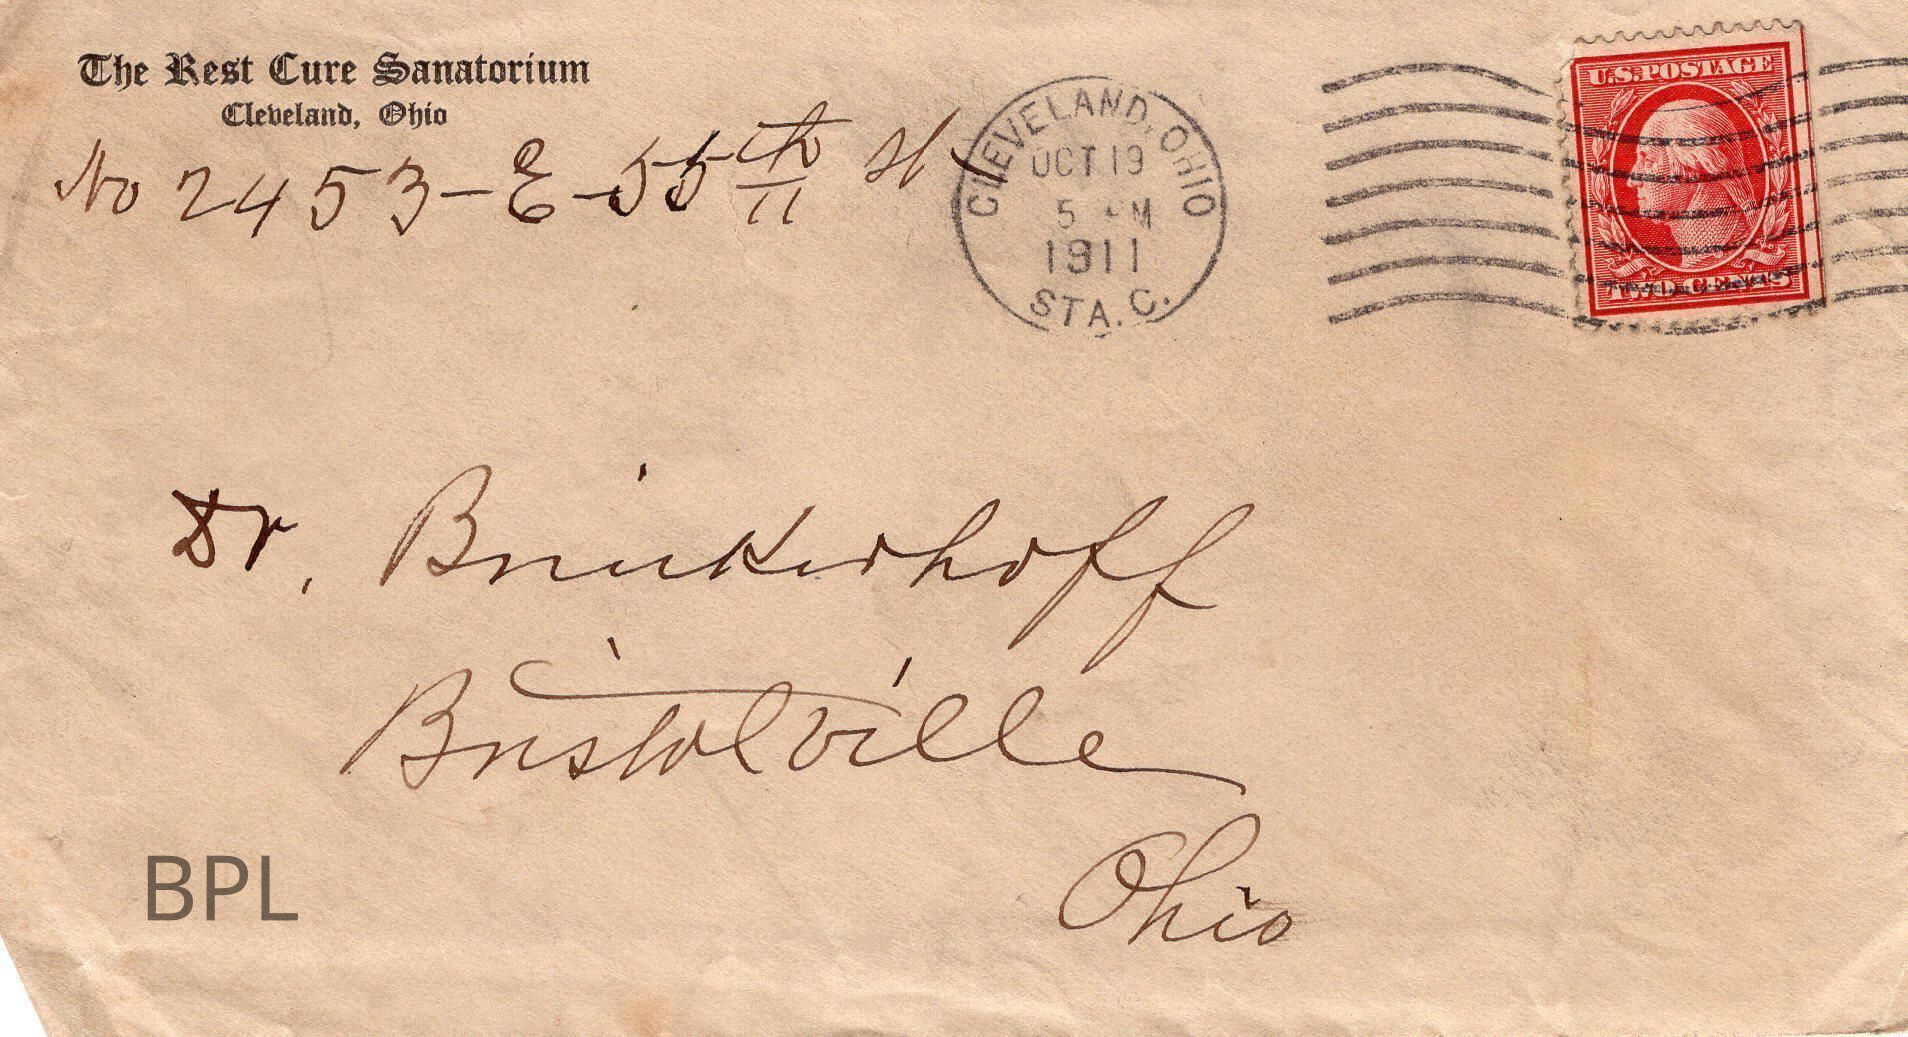 The Rest Cure Sanatorium
Cleveland, Ohio
No 2453-E-55th St
CLEVELAND, OHIO
OCT 19
5 M
1911
STA. C.
U.S. POSTAGE
TWO CENTS
Dr. Brinkerhoff
Bristolville
Ohio
BPL